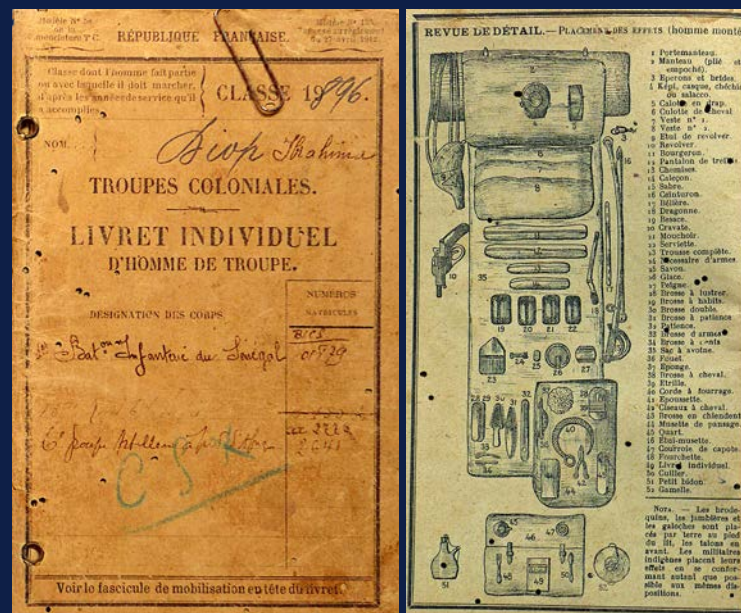 Modèle N° 5a
de la
nomenclature T C.
RÉPUBLIQUE FRANÇAISE.
Classe dont l'homme fait partie
ou avec laquelle il doit marcher,
d'après les années de service qu'il
a accomplies.
CLASSE 1896.
NOM
Diop Ibrahima
TROUPES COLONIALES.
LIVRET INDIVIDUEL
D'HOMME DE TROUPE.
DÉSIGNATION DES CORPS
NUMÉROS
MATRICULES
Bat^on Infanterie du Sénégal
6e
CSR
Voir le fascicule de mobilisation en tête du livret.
REVUE DE DÉTAIL. — PLACEMENT DES EFFETS (homme monté
1 Portemanteau.
2 Manteau (plié et
empoché).
3 Eperons et brides.
4 Képi, casque, chéchia
ou salacco.
5 Calotte en drap.
6 Culotte de cheval
7 Veste n° 1.
8 Veste n° 2.
9 Etui de revolver.
10 Revolver.
11 Bourgeron.
12 Pantalon de treillis.
13 Chemises.
14 Caleçon.
15 Sabre.
16 Ceinturon.
17 Bélière.
18 Dragonne.
19 Besace.
20 Cravate.
21 Mouchoir.
22 Serviette.
23 Trousse complète.
24 Nécessaire d'armes.
25 Savon.
26 Glace.
27 Peigne.
28 Brosse à lustrer.
29 Brosse à habits.
30 Brosse double.
31 Brosse à patience
32 Patience.
33 Brosse d'armes
34 Brosse à dents
35 Sac à avoine.
36 Fouet.
37 Eponge.
38 Brosse à cheval.
39 Etrille.
40 Corde à fourrage.
41 Epoussette.
42 Ciseaux à cheval.
43 Brosse en chiendent
44 Musette de pansage.
45 Quart.
46 Etui-musette.
47 Courroie de capote.
48 Fourchette.
49 Livret individuel.
50 Cuiller.
51 Petit bidon.
52 Gamelle.
NOTA. — Les brode-
quins, les jambières et
les galoches sont pla-
cés par terre au pied
du lit, les talons en
avant. Les militaires
indigènes placent leurs
effets en se confor-
mant autant que pos-
sible aux mêmes dis-
positions.